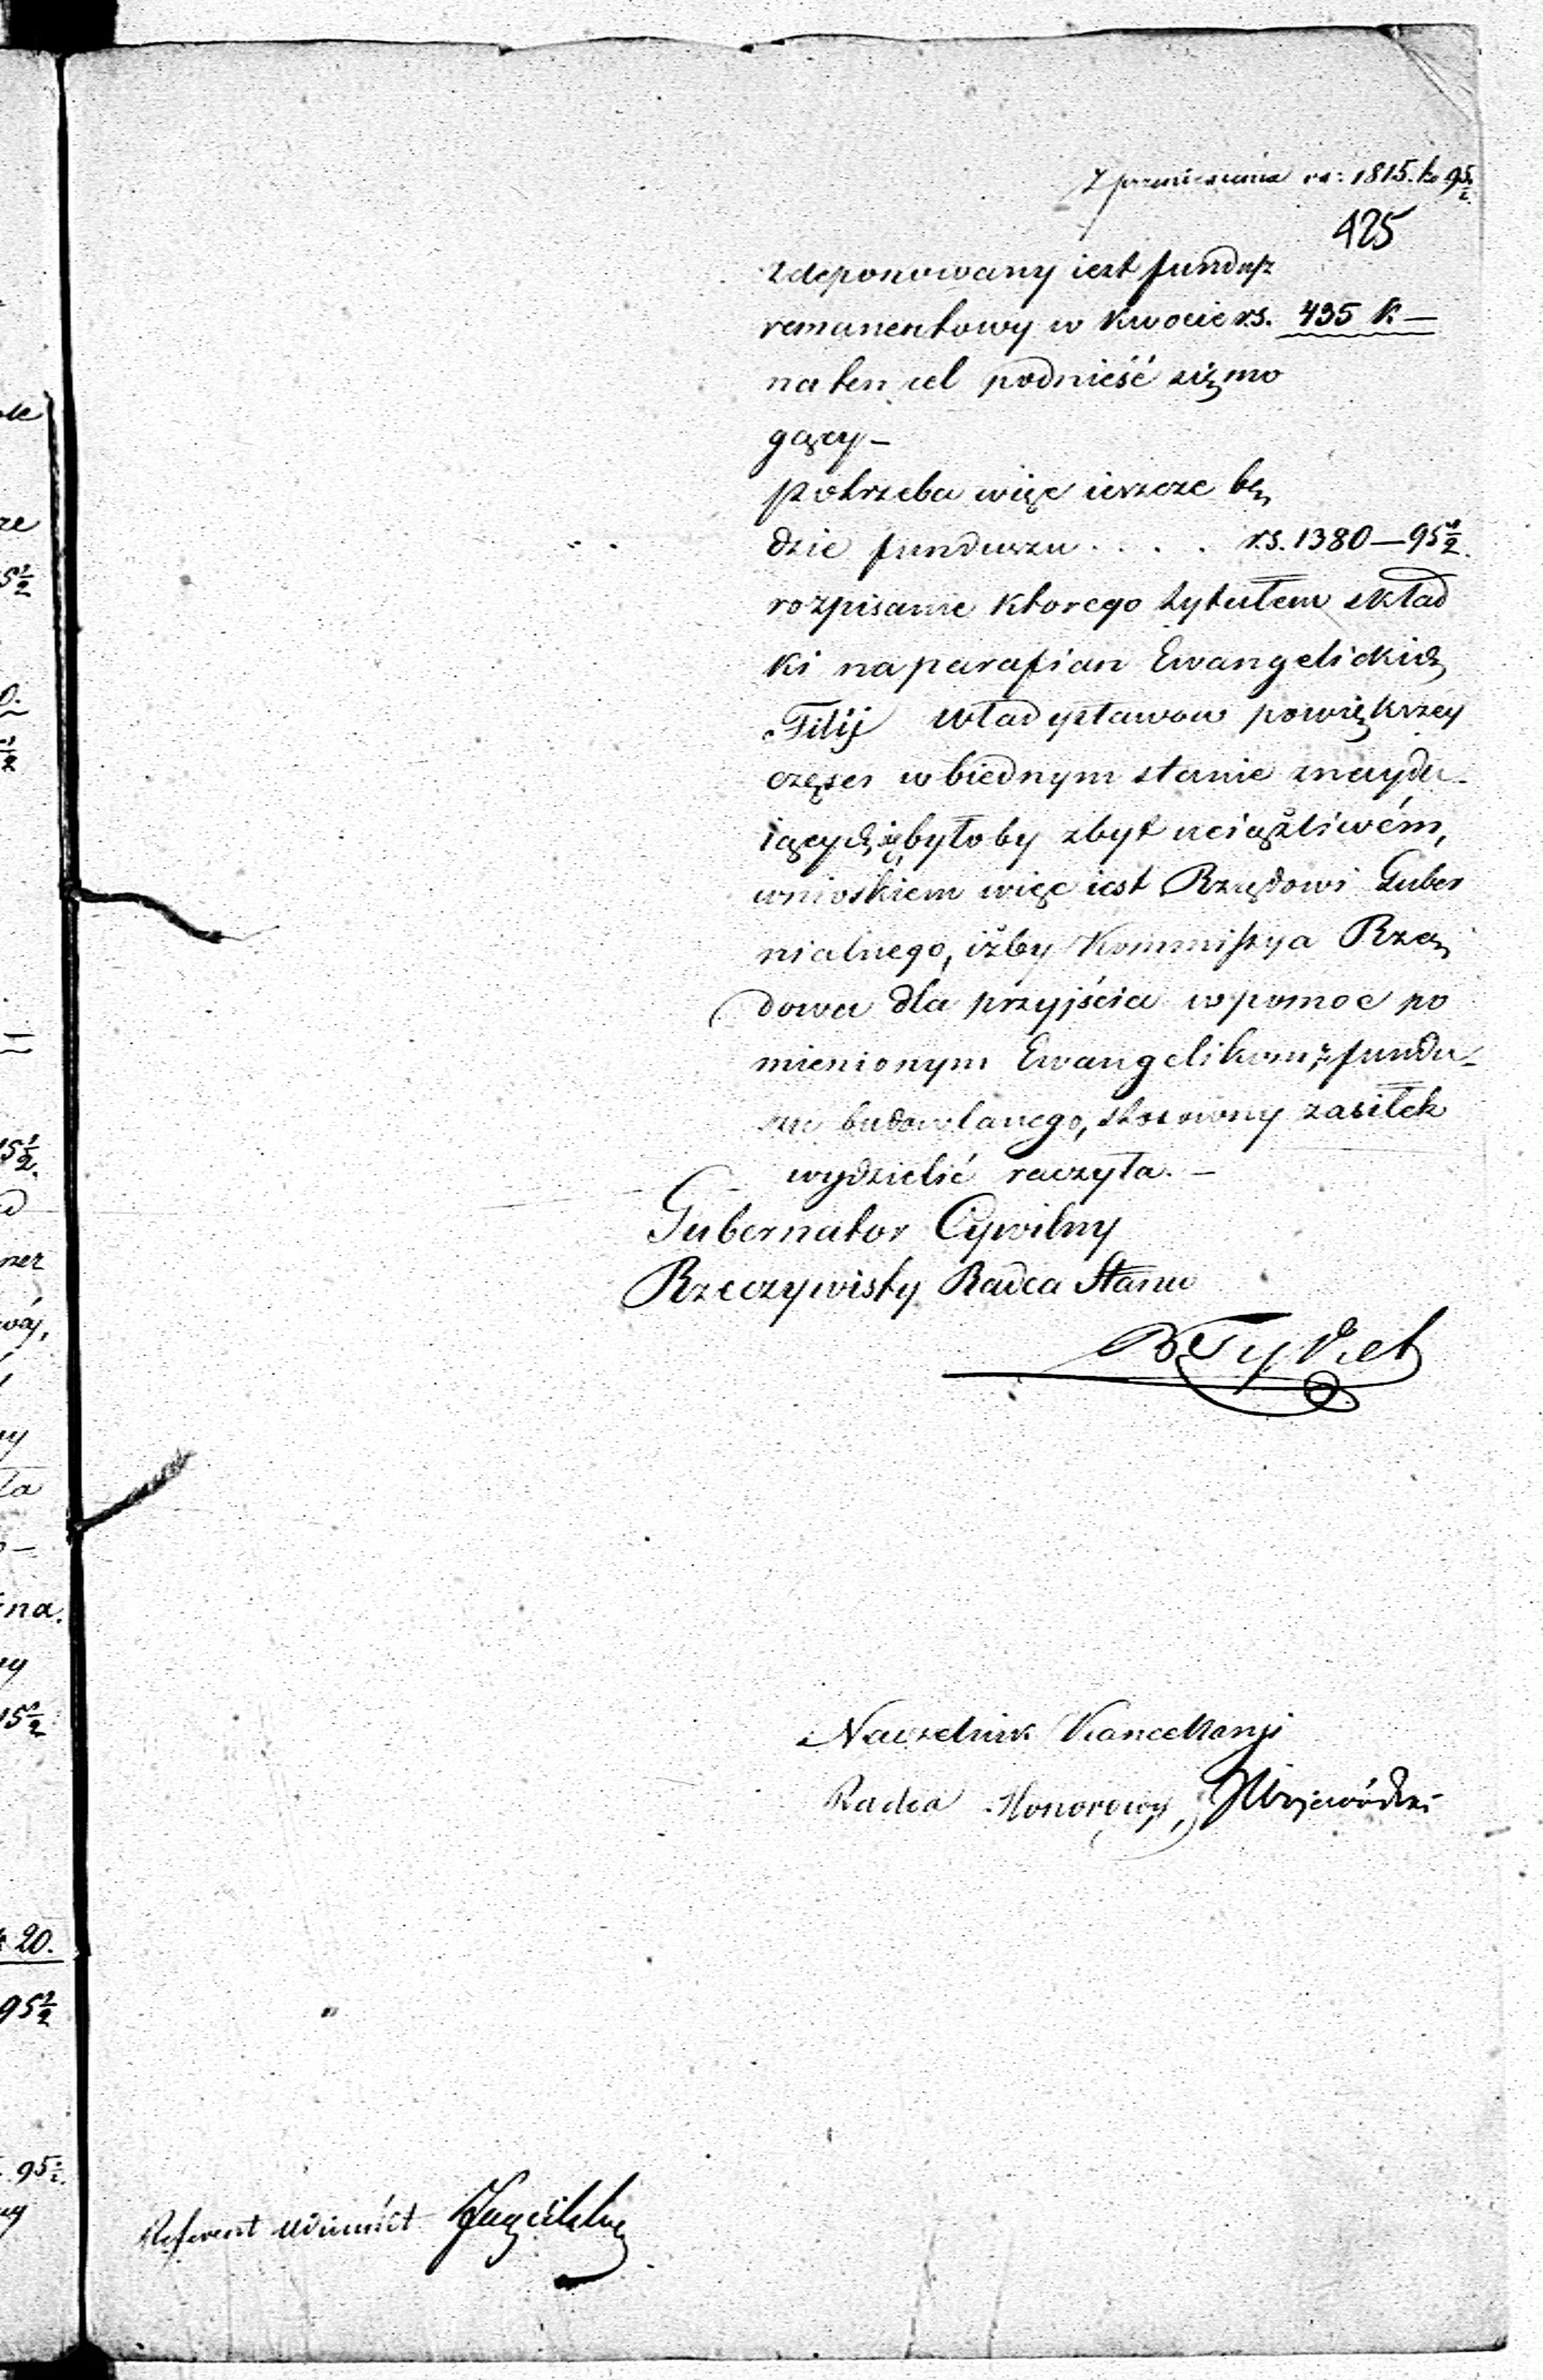 Z przeniesienia rs: 1815. k. 95½
425
zdeponowany iest fundusz
remanentowy w kwocie rs. 435 k. —
na ten cel podnieść się mo
gący —
potrzeba więc ieszcze bę
dzie funduszu . . . . rs. 1380 — 95½.
rozpisanie którego tytułem skład
ki na parafian Ewangelickich
Filij Władysławow powiększey
części w biednym stanie znaydu-
iących się byłoby zbyt uciążliwém,
wnioskiem więc iest Rządowi Guber
nialnego, iżby Kommissya Rzą
dowa dla przyjścia w pomoc po
mienionym Ewangelikom, z fundu-
szu budowlanego, stosowny zasiłek
wydzielić raczyła. —
Gubernator Cywilny
Rzeczywisty Radca Stanu
Białoskórski
Naczelnik Kancellaryi
Radca Honorowy, JWojewódzki
Referent
ze
5½
0.
½
15½.
ner
ny
ła
na.
ny
15½
k 20.
95½
. 95½.
ny